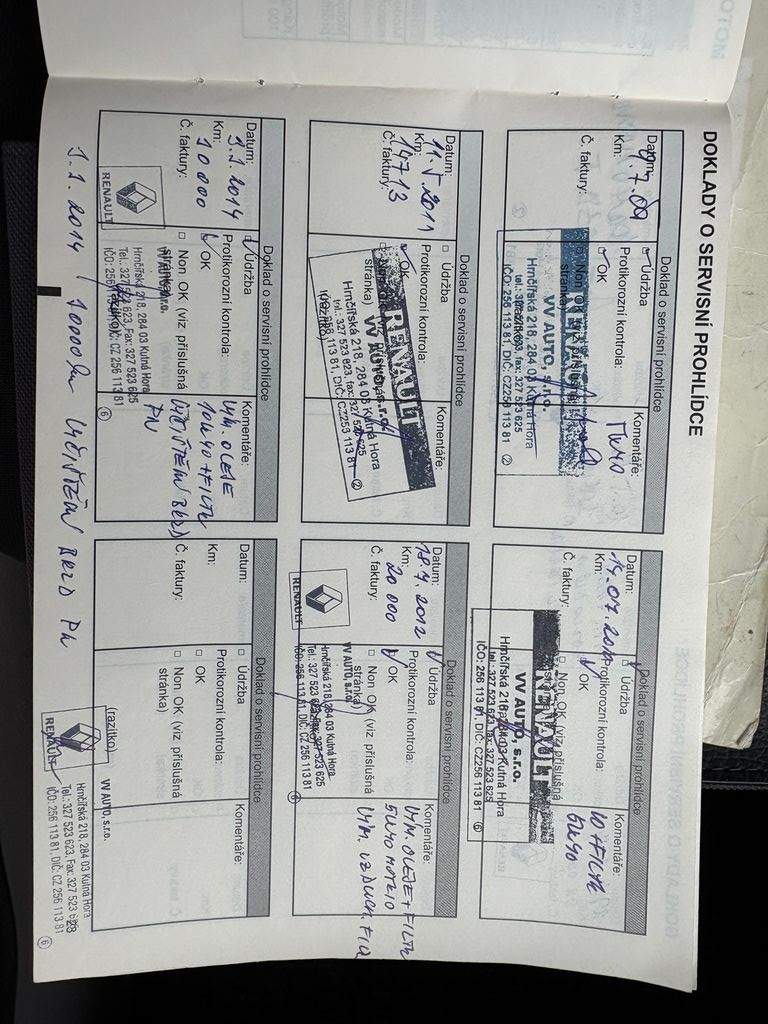 DOKLADY O SERVISNÍ PROHLÍDCE
Doklad o servisní prohlídce
Datum:
Km:
Č. faktury:
Údržba
Protikorozní kontrola:
OK
Non
Komentáře:
VV AUTO, s.r.o.
Hrnčířská 218, 284
tel.: 327 523 623, fax: 327 523 625
IČO: 256 113 81, DIČ: CZ256 113 81 ②
Doklad o servisní prohlídce
Datum:
Km:
Č. faktury:
Údržba
Protikorozní kontrola:
OK
Non OK (viz příslušná
Komentáře:
5W40
RENAULT
VV AUTO, s.r.o.
Hrnčířská 218, 284 03 Kutná Hora
tel.: 327 523 623, fax: 327 523 625
IČO: 256 113 81, DIČ: CZ256 113 81 ⑥
Doklad o servisní prohlídce
Datum: 11. 5. 2011
Km: 14713
Č. faktury:
Údržba
Protikorozní kontrola:
OK
stránka)
Komentáře:
RENAULT
VV AUTO, s.r.o.
Hrnčířská 218, 284 03 Kutná Hora
tel.: 327 523 623, fax: 327 523 625
IČO: 256 113 81, DIČ: CZ256 113 81 ②
Doklad o servisní prohlídce
Datum: 18.4. 2012
Km: 20 000
Č. faktury:
Údržba
Protikorozní kontrola:
OK
Non OK (viz příslušná
stránka)
Komentáře:
VÝM. OLEJE + FILTR
5W40
VÝM. VZDUCH. FIL
RENAULT
VV AUTO, s.r.o.
Hrnčířská 218, 284 03 Kutná Hora
Tel.: 327 523 623, Fax: 327 523 625
IČO: 256 113 81, DIČ: CZ 256 113 81
⑥
Doklad o servisní prohlídce
Datum: 3.1. 2014
Km: 10 000
Č. faktury:
Údržba
Protikorozní kontrola:
OK
Non OK (viz příslušná
stránka)
Komentáře:
VÝM. OLEJE
10W40 + FILTR
VYČIŠTĚNÍ BRZD
PN
RENAULT
VV AUTO, s.r.o.
Hrnčířská 218, 284 03 Kutná Hora
Tel.: 327 523 623, Fax: 327 523 625
IČO: 256 113 81, DIČ: CZ 256 113 81
⑥
Doklad o servisní prohlídce
Datum:
Km:
Č. faktury:
Údržba
Protikorozní kontrola:
OK
Non OK (viz příslušná
stránka)
Komentáře:
(razítko)
RENAULT
VV AUTO, s.r.o.
Hrnčířská 218, 284 03 Kutná Hora
Tel.: 327 523 623, Fax: 327 523 625
IČO: 256 113 81, DIČ: CZ 256 113 81
⑥
23
3.1. 2014 10000 km VYČIŠTĚNÍ BRZD PN